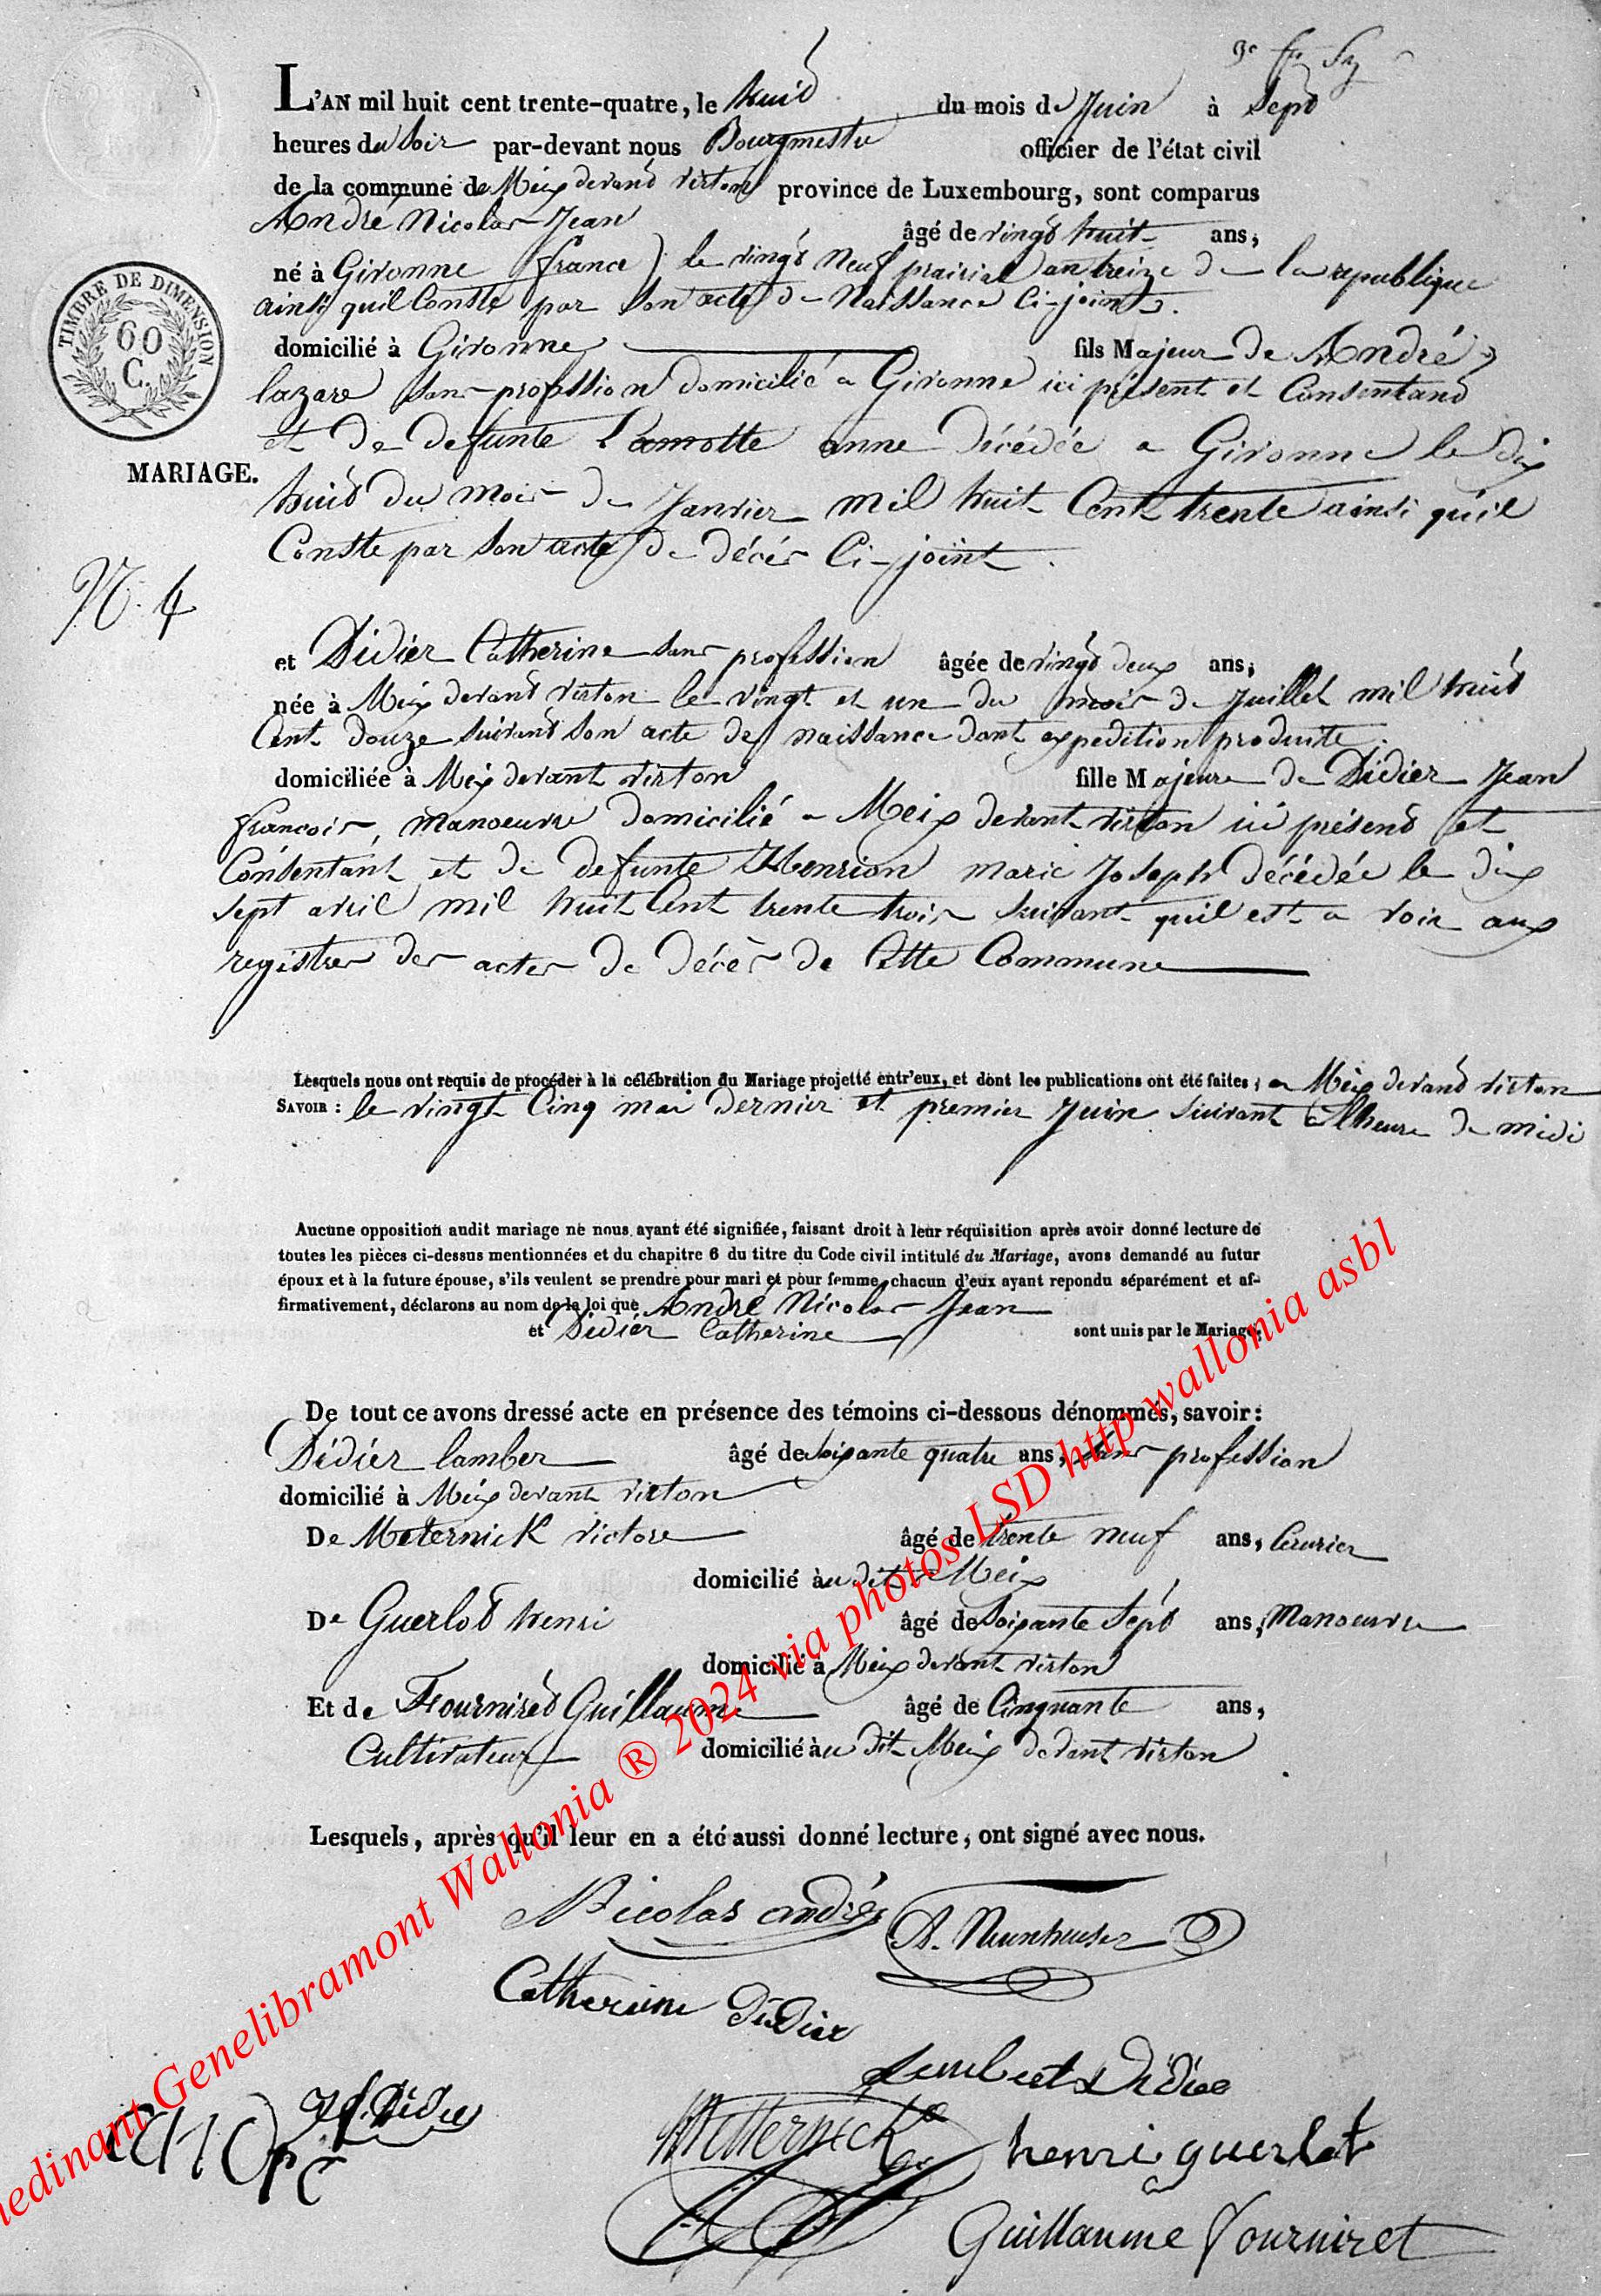 L'AN mil huit cent trente-quatre, le huit du mois de Juin à Sept
heures du Soir par-devant nous Bourgmestre officier de l'état civil
de la commune de Meix devant virton province de Luxembourg, sont comparus
André Nicolas Jean âgé de vingt huit ans,
né à Givonne (france) le vingt Neuf prairial an treize de la republique
ainsi quil Conste par son acte de Naissance Ci-joint.
TIMBRE DE DIMENSION
60
C.
domicilié à Givonne fils Majeur de André
lazare sans profession domicilié a Givonne ici présent et Consentant
et de defunte Lamotte anne décédée a Givonne le dix
MARIAGE.
huit du mois de Janvier mil huit Cent trente ainsi quil
Conste par son acte de décés Ci-joint.
N. 4
et Didier Catherine sans profession âgée de vingt deux ans,
née à Meix devant virton le vingt et un du mois de Juillet mil huit
Cent douze suivant son acte de naissance dont expedition produite.
domiciliée à Meix devant virton fille Majeure de Didier Jean
françois, manoeuvre domicilié a Meix devant virton ici présent et
Consentant et de defunte Henrion marie Joseph décédée le dix
sept avril mil huit Cent trente trois suivant quil est a voir aux
registres des actes de décès de Cette Commune
Lesquels nous ont requis de procéder à la célébration du Mariage projetté entr'eux, et dont les publications ont été faites; a Meix devant virton
SAVOIR : le vingt Cinq mai dernier et premier Juin suivant a l'heure de midi
Aucune opposition audit mariage ne nous ayant été signifiée, faisant droit à leur réquisition après avoir donné lecture de
toutes les pièces ci-dessus mentionnées et du chapitre 6 du titre du Code civil intitulé du Mariage, avons demandé au futur
époux et à la future épouse, s'ils veulent se prendre pour mari et pour femme, chacun d'eux ayant repondu séparément et af-
firmativement, déclarons au nom de la loi que André Nicolas Jean
et Didier Catherine sont unis par le Mariage.
De tout ce avons dressé acte en présence des témoins ci-dessous dénommés, savoir:
Didier lamber âgé de soixante quatre ans, sans profession
domicilié à Meix devant virton
De Meternick victore âgé de trente neuf ans,
domicilié au dit Meix
De Guerlot henri âgé de Soixante Sept ans, Manoeuvre
domicilié à Meix devant virton
Et de Fourniret Guillaume âgé de Cinquante ans,
Cultivateur domicilié au dit Meix devant virton
Lesquels, après qu'il leur en a été aussi donné lecture, ont signé avec nous.
Nicolas andrés
Catherine Didier
Lambert Didier
j f Didier
Metternick
henri guerlot
Guillaume Fourniret
nedinant Genelibramont Wallonia ® 2024 via photos LSD http wallonia asbl